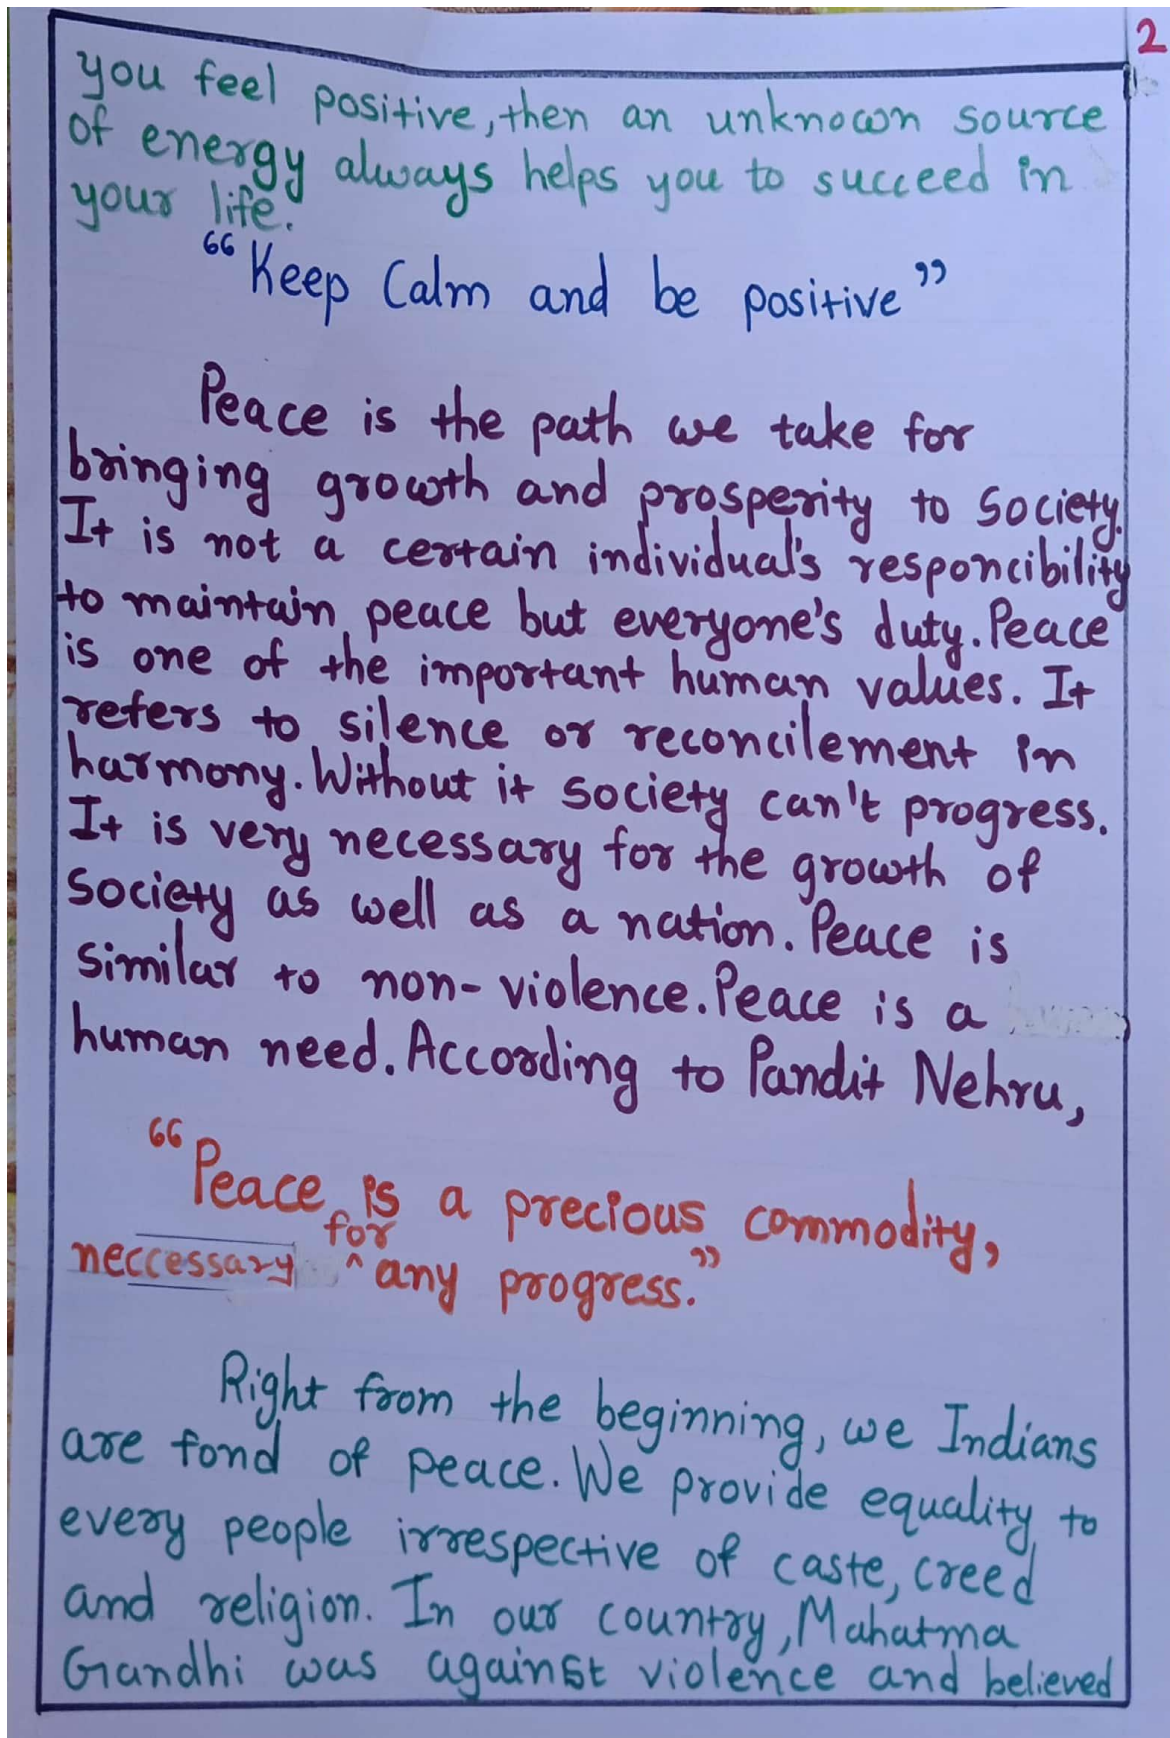 2
you feel positive, then an unknown source
of energy always helps you to succeed in
your life.
"Keep Calm and be positive"
Peace is the path we take for
bringing growth and prosperity to Society.
It is not a certain individual's responcibility
to maintain peace but everyone's duty. Peace
is one of the important human values. It
refers to silence or reconcilement in
harmony. Without it society can't progress.
It is very necessary for the growth of
society as well as a nation. Peace is
similar to non-violence. Peace is a
human need. According to Pandit Nehru,
"Peace is a precious commodity,
neccessary for any progress."
Right from the beginning, we Indians
are fond of peace. We provide equality to
every people irrespective of caste, creed
and religion. In our country, Mahatma
Gandhi was against violence and believed